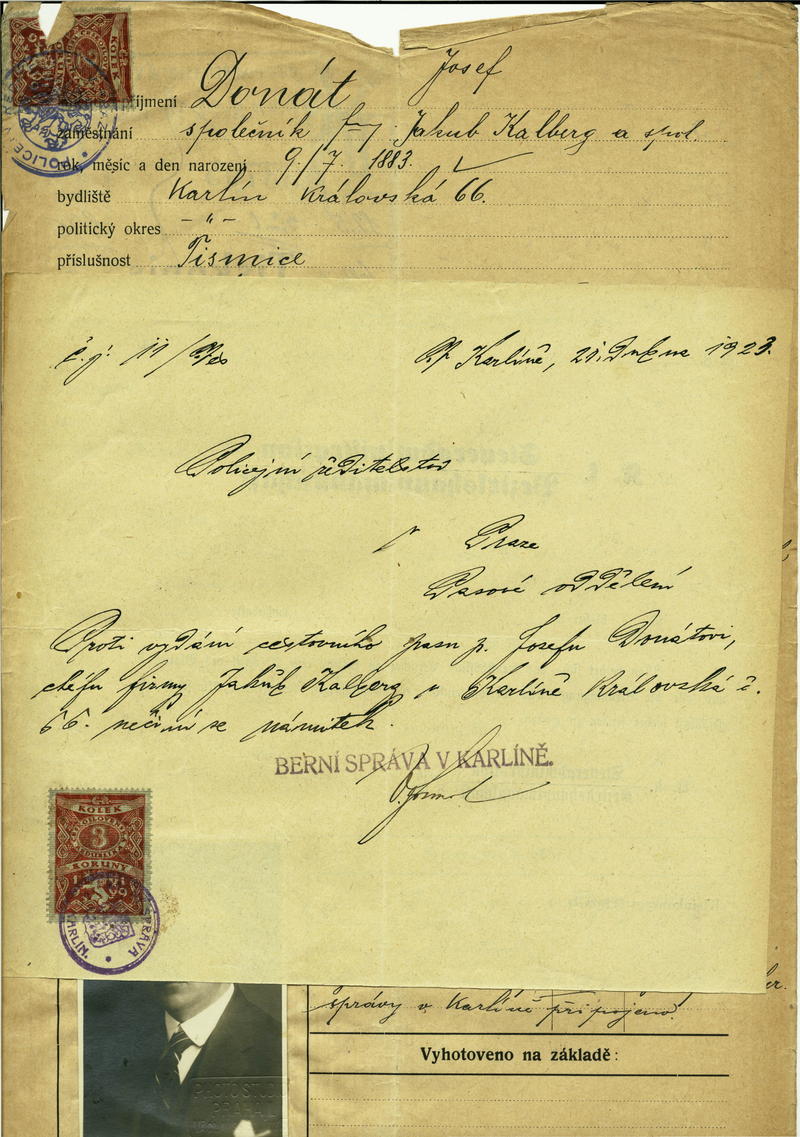 Josef
příjmení Donát
zaměstnání společník f-y Jakub Kalberg a spol.
rok, měsíc a den narození 9/7. 1883.
bydliště Karlín Královská 66.
politický okres – " –
příslušnost Tismice
č. j. 11/
V Karlíně, 21. dubna 1923.
Policejní ředitelství
v Praze
Pasové oddělení
Proti vydání cestovního pasu p. Josefu Donátovi,
chéfu firmy Jakub Kalberg v Karlíně Královská č.
66. nečiní se námitek.
BERNÍ SPRÁVA V KARLÍNĚ.
KOLEK
3
KORUNY
SPRÁVA
KARLÍN.
správy v Karlíně připojeno.
Vyhotoveno na základě: